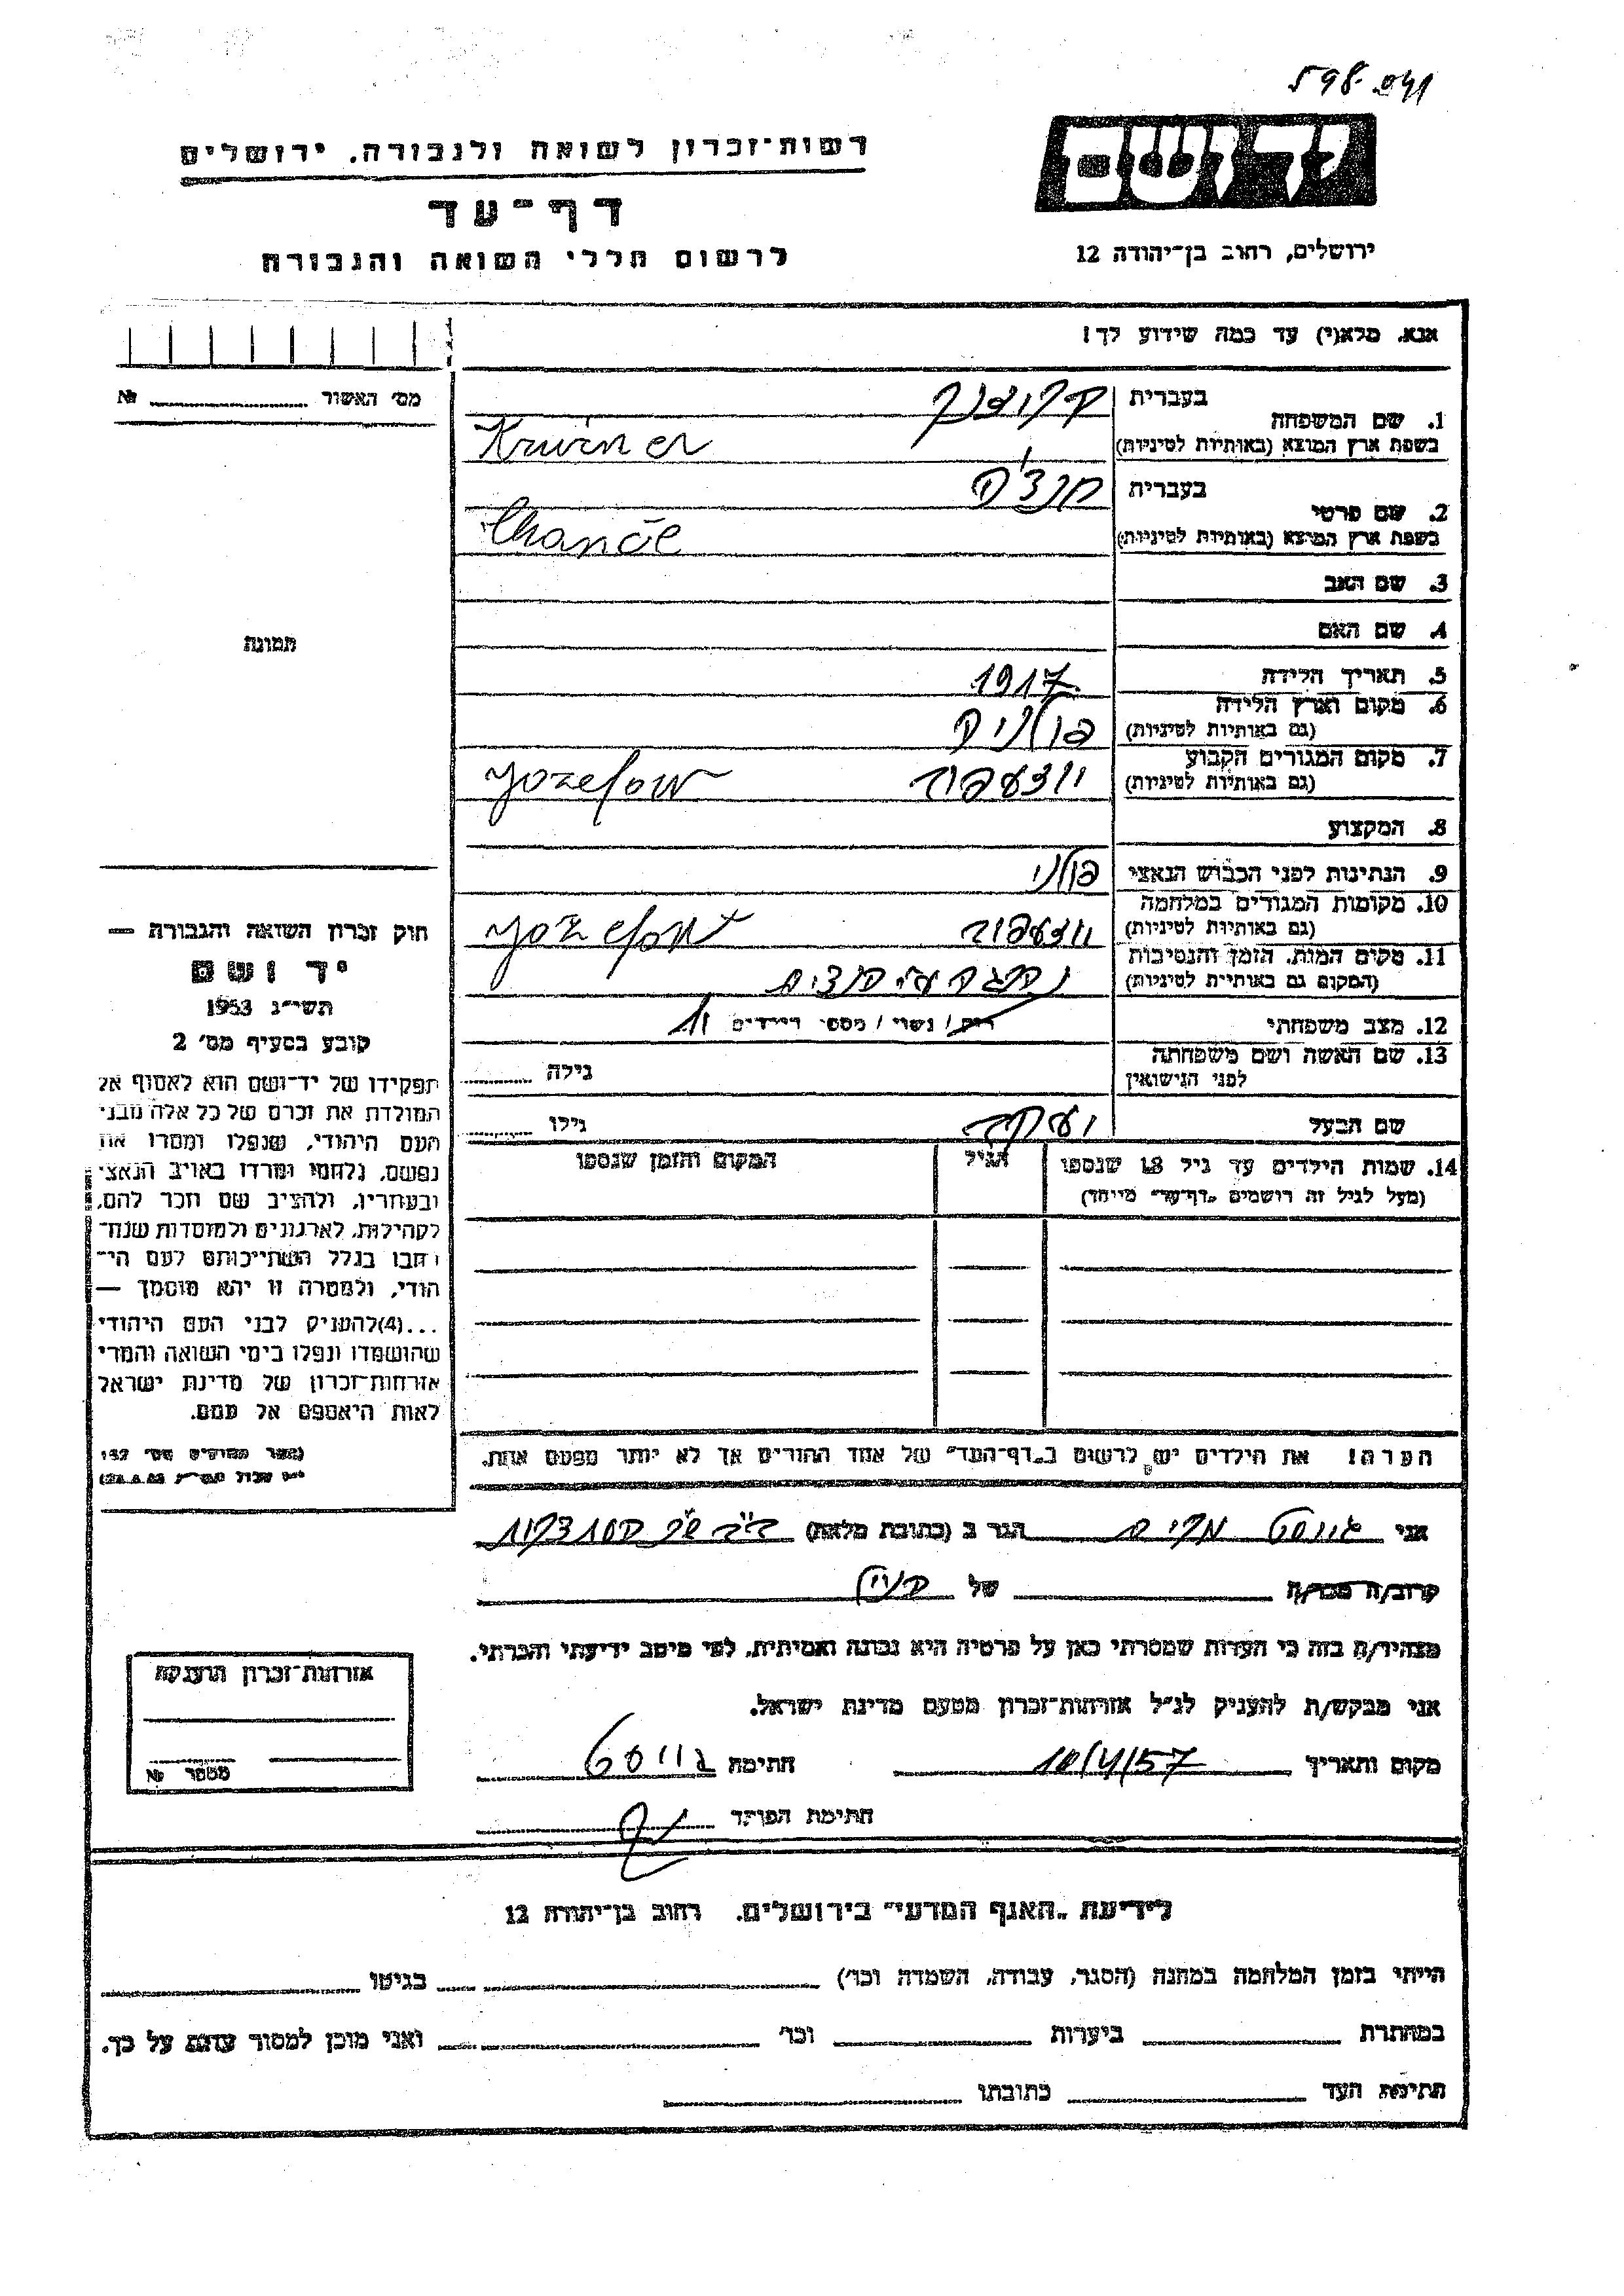 רשות־זכרון לשואה ולגבורה, ירושלים
דף־עד
לרשום חללי השואה והגבורה
יד ושם
ירושלים, רחוב בן־יהודה 12
אנא, מלא(י) עד כמה שידוע לך!
מס׳ האשור № 
1. שם המשפחה
בעברית
בשפת ארץ המוצא (באותיות לטיניות) Krwiner
2. שם פרטי
בעברית
בשפת ארץ המוצא (באותיות לטיניות)
3. שם האב
4. שם האם
5. תאריך הלידה 1917
6. מקום וארץ הלידה
(גם באותיות לטיניות) פולניה
7. מקום המגורים הקבוע
(גם באותיות לטיניות) יוזעפוב Jozefow
8. המקצוע
9. הנתינות לפני הכבוש הנאצי פולני
10. מקומות המגורים במלחמה
(גם באותיות לטיניות) יוזעפוב Jozefow
11. מקום המות, הזמן והנסיבות
(המקום גם באותיות לטיניות)
12. מצב משפחתי רוק/ נשוי/ מספר הילדים
13. שם האשה ושם משפחתה
לפני הנישואין גילה
שם הבעל יעקב גילו
14. שמות הילדים עד גיל 18 שנספו
(מעל לגיל זה רושמים „דף־עד״ מיוחד)
הגיל
המקום והזמן שנספו
הערה! את הילדים יש לרשום ב„דף־העד״ של אחד ההורים אך לא יותר מפעם אחת.
תמונה
חוק זכרון השואה והגבורה —
יד ושם
תשי״ג 1953
קובע בסעיף מס׳ 2
תפקידו של יד־ושם הוא לאסוף אל
המולדת את זכרם של כל אלה מבני
העם היהודי, שנפלו ומסרו את
נפשם, נלחמו ומרדו באויב הנאצי
ובעוזריו, ולהציב שם וזכר להם,
לקהילות, לארגונים ולמוסדות שנח־
רבו בגלל השתייכותם לעם הי־
הודי, ולמטרה זו יהא מוסמך —
...(4)להעניק לבני העם היהודי
שהושמדו ונפלו בימי השואה והמרי
אזרחות־זכרון של מדינת ישראל
לאות היאספם אל עמם.
אני מרים הגר ב (כתובת מלאה)
קרוב/ה מכר/ה של
מצהיר/ה בזה כי העדות שמסרתי כאן על פרטיה היא נכונה ואמיתית, לפי מיטב ידיעתי והכרתי.
אני מבקש/ת להעניק לנ״ל אזרחות־זכרון מטעם מדינת ישראל.
מקום ותאריך חתימה
חתימת הפוקד
אזרחות־זכרון הוענקה
מספר №
לידיעת „האגף המדעי״ בירושלים, רחוב בן־יהודה 12
הייתי בזמן המלחמה במחנה (הסגר, עבודה, השמדה וכו׳) בגיטו
במחתרת ביערות וכו׳ ואני מוכן למסור עדות על כך.
חתימת העד כתובתו